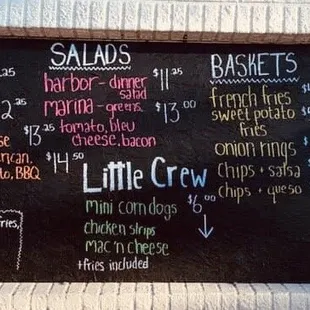 .25
2.25
se $13.25
rican, $14.50
to, BBQ
fries,
SALADS
harbor - dinner $11.25
salad
marina - greens, $13.00
tomato, bleu
cheese, bacon
Little Crew
mini corn dogs $6.00
chicken strips
mac 'n cheese
+fries included
BASKETS
french fries $
sweet potato $
fries
onion rings $
chips + salsa
chips + queso